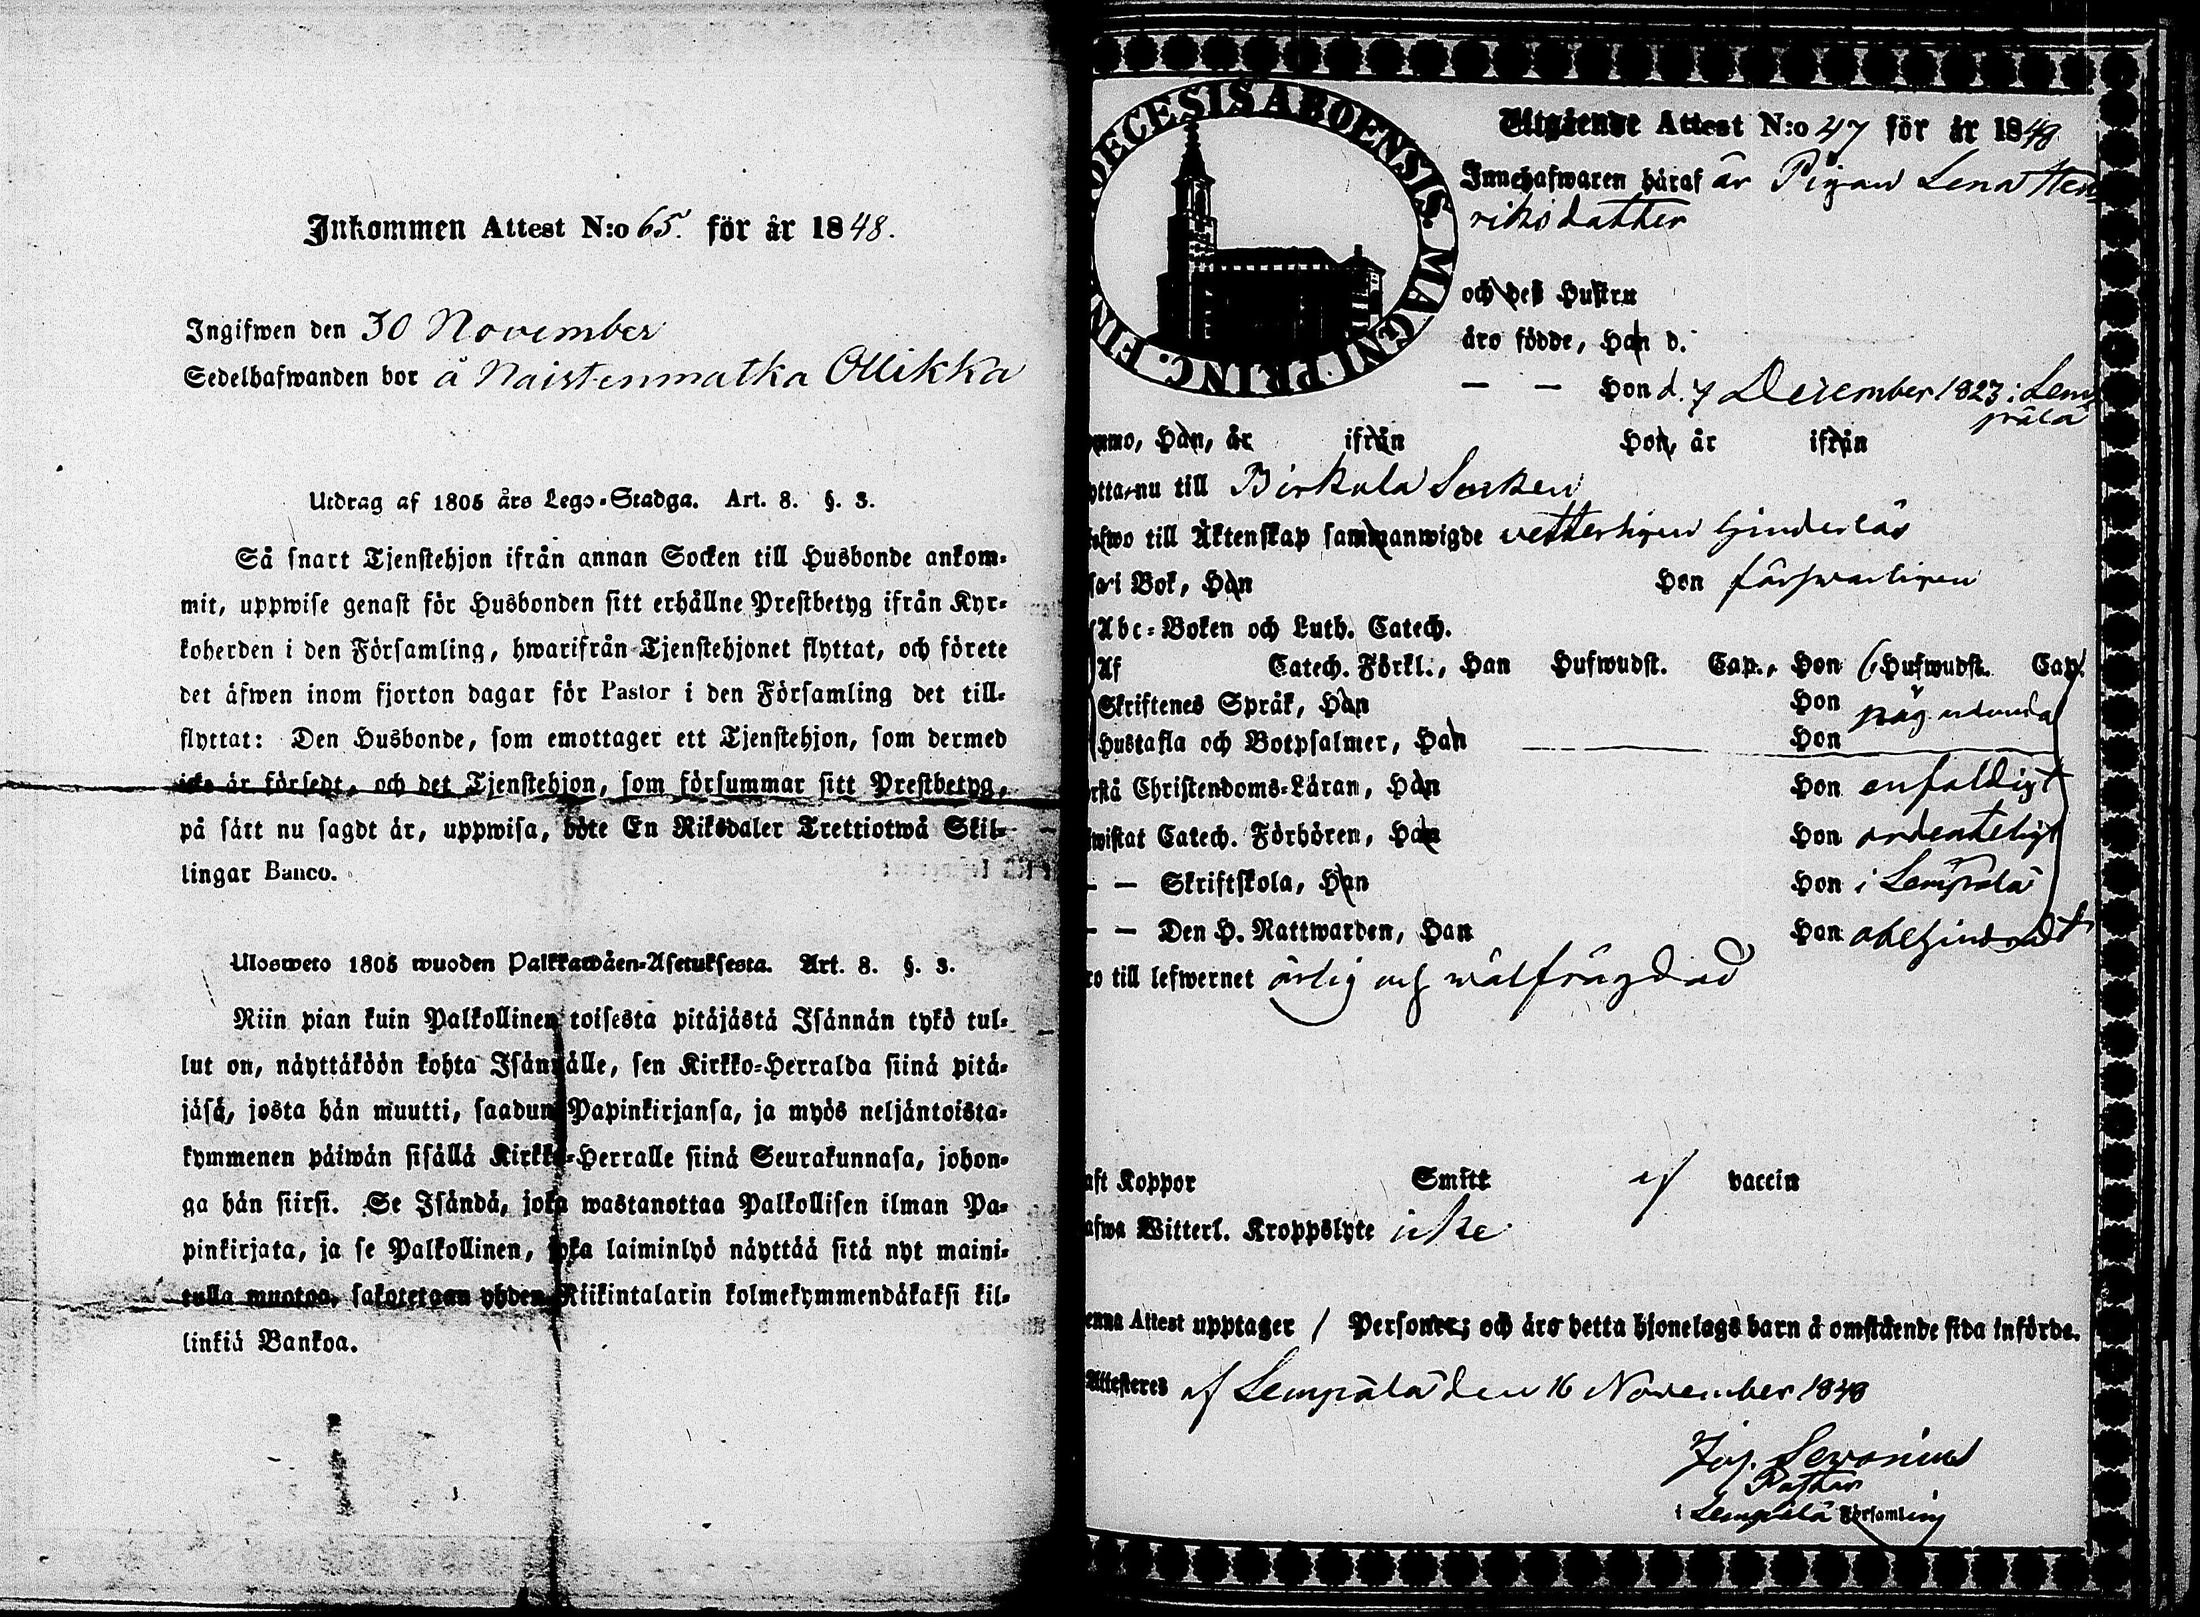 Inkommen Attest N:o 65. för år 1848.
Ingifwen den 30 November
Sedelhafwanden bor å Naistenmatka Ollikka
Utdrag af 1805 års Lego-Stadga. Art. 8. §. 3.
Så snart Tjenstehjon ifrån annan Socken till Husbonde ankom-
mit, uppwise genast för Husbonden sitt erhållne Prestbetyg ifrån Kyr-
koherden i den Församling, hwarifrån Tjenstehjonet flyttat, och förete
det äfwen inom fjorton dagar för Pastor i den Församling det till-
flyttat: Den Husbonde, som emottager ett Tjenstehjon, som dermed
icke är försedt, och det Tjenstehjon, som försummar sitt Prestbetyg,
på sätt nu sagdt är, uppwisa, böte En Riksdaler Trettiotwå Skil-
lingar Banco.
Ulosweto 1805 wuoden Palkkawäen-Asetuksesta. Art. 8. §. 3.
Niin pian kuin Palkollinen toisesta pitäjästä Isännän tykö tul-
lut on, näyttäköön kohta Isännälle, sen Kirkko-Herralda siinä pitä-
jäsä, josta hän muutti, saadun Papinkirjansa, ja myös neljäntoista-
kymmenen päiwän sisällä Kirkko-Herralle siinä Seurakunnasa, johon-
ga hän siirsi. Se Isändä, joka wastanottaa Palkollisen ilman Pa-
pinkirjata, ja se Palkollinen, joka laiminlyö näyttää sitä nyt maini-
tulla muotoa, sakotetaan yhden Riikintalarin kolmekymmendäkaksi kil-
linkiä Bankoa.
DECESIS ABOENSIS. MAGNI PRINC. FIN
Utgående Attest N:o 47 för år 1848
Innehafwaren häraf är Pigan Lena Hen
riksdatter
och des Hustru
äro födde, Han d.
— — Hon d. 7 December 1823 i Lem
pälä
ommo, Han, år ifrån Hon, år ifrån
ytta nu till Birkala Socken
afwo till Äktenskap sammanwigde vetterligen hinderlös
sa i Bok, Han Hon försvarligen
Abc-Boken och Luth. Catech.
Af Catech. Förkl., Han Hufwudst. Cap., Hon 6 Hufwudst. Cap.
Skriftenes Språk, Han Hon
Hustafla och Botpsalmer, Han Hon
rstå Christendoms-Läran, Han Hon enfaldigt
wistat Catech. Förhören, Han Hon ordenteligt
— — Skriftskola, Han Hon i Lempälä
— — Den H. Nattwarden, Han Hon obehindradt
ro till lefwernet ärlig och wälfrägdad
aft Koppor Smitt af vaccin
afwa Witterl. Kroppslyte icke
enna Attest upptager 1 Personer; och äro detta hjonelags barn å omstående sida införde.
Attesteres af Lempälä den 16 November 1848
Pastor
i Lempälä Församling